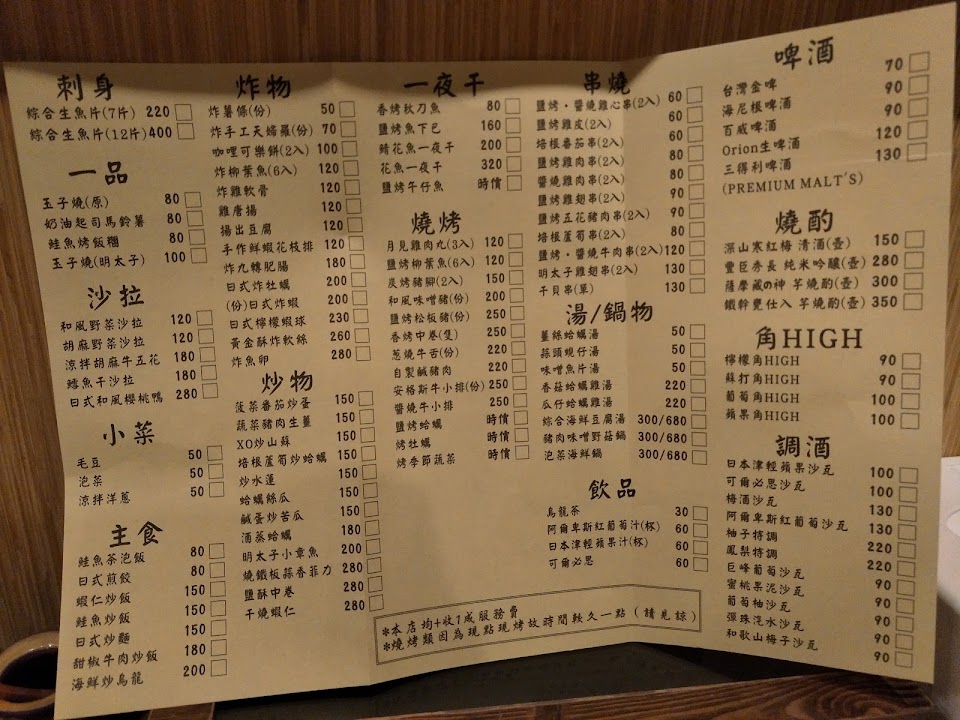 刺身
綜合生魚片(7片) 220
綜合生魚片(12片) 400
一品
玉子燒(原) 80
奶油起司馬鈴薯 80
鮭魚烤飯糰 80
玉子燒(明太子) 100
沙拉
和風野菜沙拉 120
胡麻野菜沙拉 120
涼拌胡麻牛五花 180
鱈魚干沙拉 180
日式和風櫻桃鴨 280
小菜
毛豆 50
泡菜 50
涼拌洋蔥 50
主食
鮭魚茶泡飯 80
日式煎餃 80
蝦仁炒飯 150
鮭魚炒飯 150
日式炒麵 150
甜椒牛肉炒飯 180
海鮮炒烏龍 200
炸物
炸薯條(份) 50
炸手工天婦羅(份) 70
咖哩可樂餅(2入) 100
炸柳葉魚(6入) 120
炸雞軟骨 120
雞唐揚 120
揚出豆腐 120
手作鮮蝦花枝排 120
炸九轉肥腸 180
日式炸牡蠣 200
(份)日式炸蝦 200
日式檸檬蝦球 230
黃金酥炸軟絲 260
炸魚卵 280
炒物
菠菜番茄炒蛋 150
蔬菜豬肉生薑 150
XO炒山蘇 150
培根蘆筍炒蛤蠣 150
炒水蓮 150
蛤蠣絲瓜 150
鹹蛋炒苦瓜 150
酒蒸蛤蠣 180
明太子小章魚 200
燒鐵板蒜香菲力 280
鹽酥中卷 280
干燒蝦仁 280
一夜干
香烤秋刀魚 80
鹽烤魚下巴 160
鯖花魚一夜干 200
花魚一夜干 320
鹽烤午仔魚 時價
燒烤
月見雞肉丸(3入) 120
鹽烤柳葉魚(6入) 120
炭烤豬腳(2入) 150
和風味噌豬(份) 200
鹽烤松板豬(份) 250
香烤中卷(隻) 250
蔥燒牛舌(份) 220
自製鹹豬肉 220
安格斯牛小排(份) 250
醬燒牛小排 250
鹽烤蛤蠣 時價
烤牡蠣 時價
烤季節蔬菜 時價
串燒
鹽烤・醬燒雞心串(2入) 60
鹽烤雞皮(2入) 60
培根番茄串(2入) 60
鹽烤雞肉串(2入) 80
醬燒雞肉串(2入) 80
鹽烤雞翅串(2入) 90
鹽烤五花豬肉串(2入) 90
培根蘆筍串(2入) 80
鹽烤・醬燒牛肉串(2入) 120
明太子雞翅串(2入) 130
干貝串(單) 130
湯/鍋物
薑絲蛤蠣湯 50
蒜頭蜆仔湯 50
味噌魚片湯 50
香菇蛤蠣雞湯 220
瓜仔蛤蠣雞湯 220
綜合海鮮豆腐湯 300/680
豬肉味噌野菇鍋 300/680
泡菜海鮮鍋 300/680
飲品
烏龍茶 30
阿爾卑斯紅葡萄汁(杯) 60
日本津輕蘋果汁(杯) 60
可爾必思 60
*本店均+收1成服務費
*燒烤類因為現點現烤故時間較久一點(請見諒)
啤酒
台灣金啤 70
海尼根啤酒 90
百威啤酒 90
Orion生啤酒 120
三得利啤酒 130
(PREMIUM MALT'S)
燒酌
深山寒紅梅 清酒(壺) 150
豐臣秀長 純米吟釀(壺) 280
薩摩藏の神 芋燒酌(壺) 300
鐵幹甕仕入 芋燒酌(壺) 350
角HIGH
檸檬角HIGH 90
蘇打角HIGH 90
葡萄角HIGH 100
蘋果角HIGH 100
調酒
日本津輕蘋果沙瓦 100
可爾必思沙瓦 100
梅酒沙瓦 130
阿爾卑斯紅葡萄沙瓦 130
柚子特調 220
鳳梨特調 220
巨峰葡萄沙瓦 90
蜜桃果泥沙瓦 90
葡萄柚沙瓦 90
彈珠汽水沙瓦 90
和歌山梅子沙瓦 90